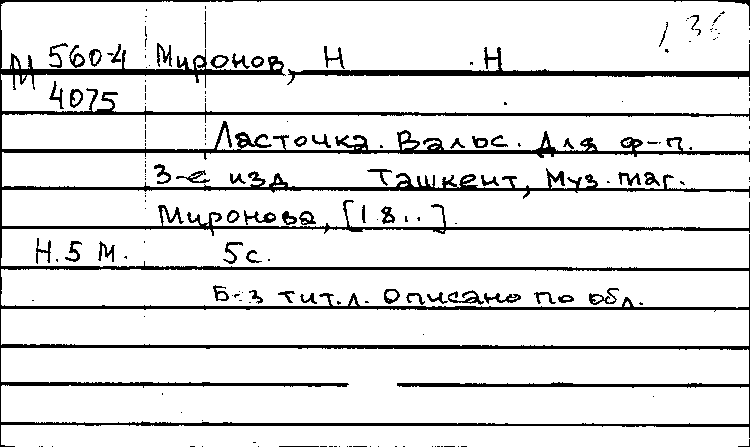 1.36
М 560-4 Миронов, Н. Н
4075
Ласточка. Вальс. Для ф-п.
3-е изд Ташкент, Муз. маг.
Миронова, [18..].
Н.5 М. 5с.
Б-з тит.л. Описано по обл.